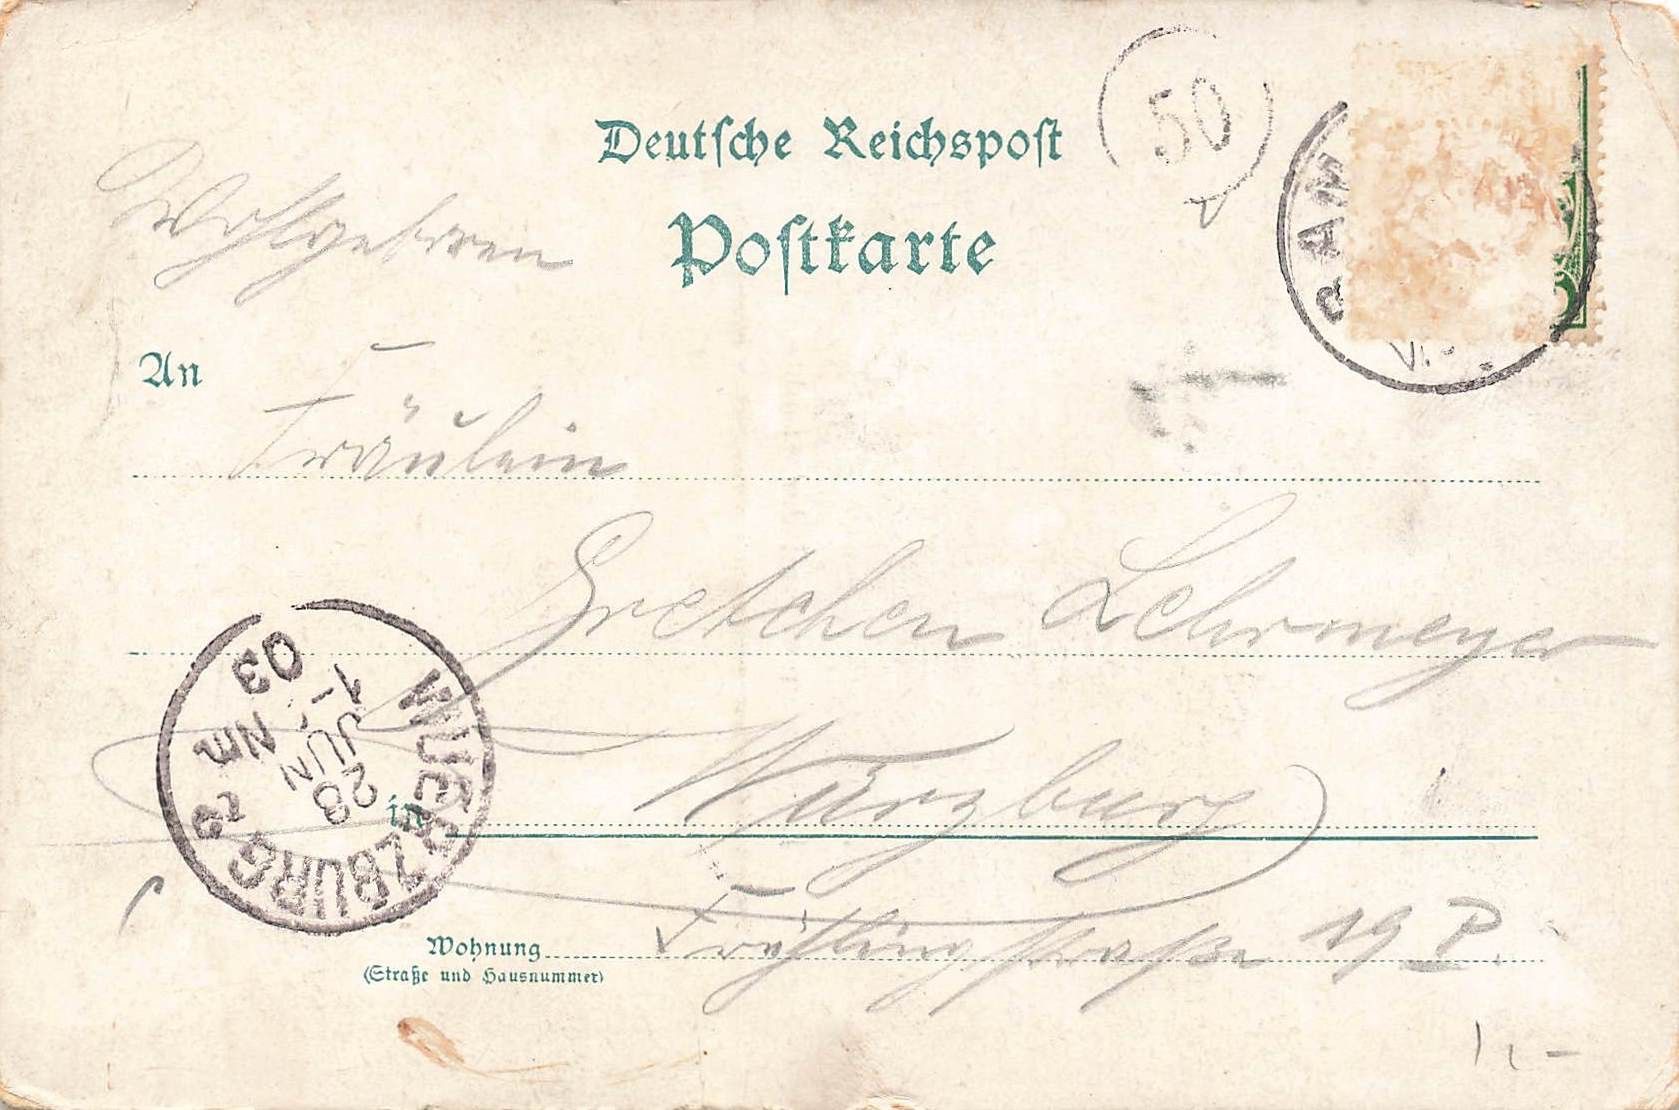 Deutsche Reichspost
50
Postkarte
Wohlgeboren
An
Fräulein
Gretchen Lehrmeyer
WUERZBURG
28
JUN
1-
Nm
03
in Würzburg
Wohnung
(Straße und Hausnummer)
Frühlingstraße 19 P.
1,-